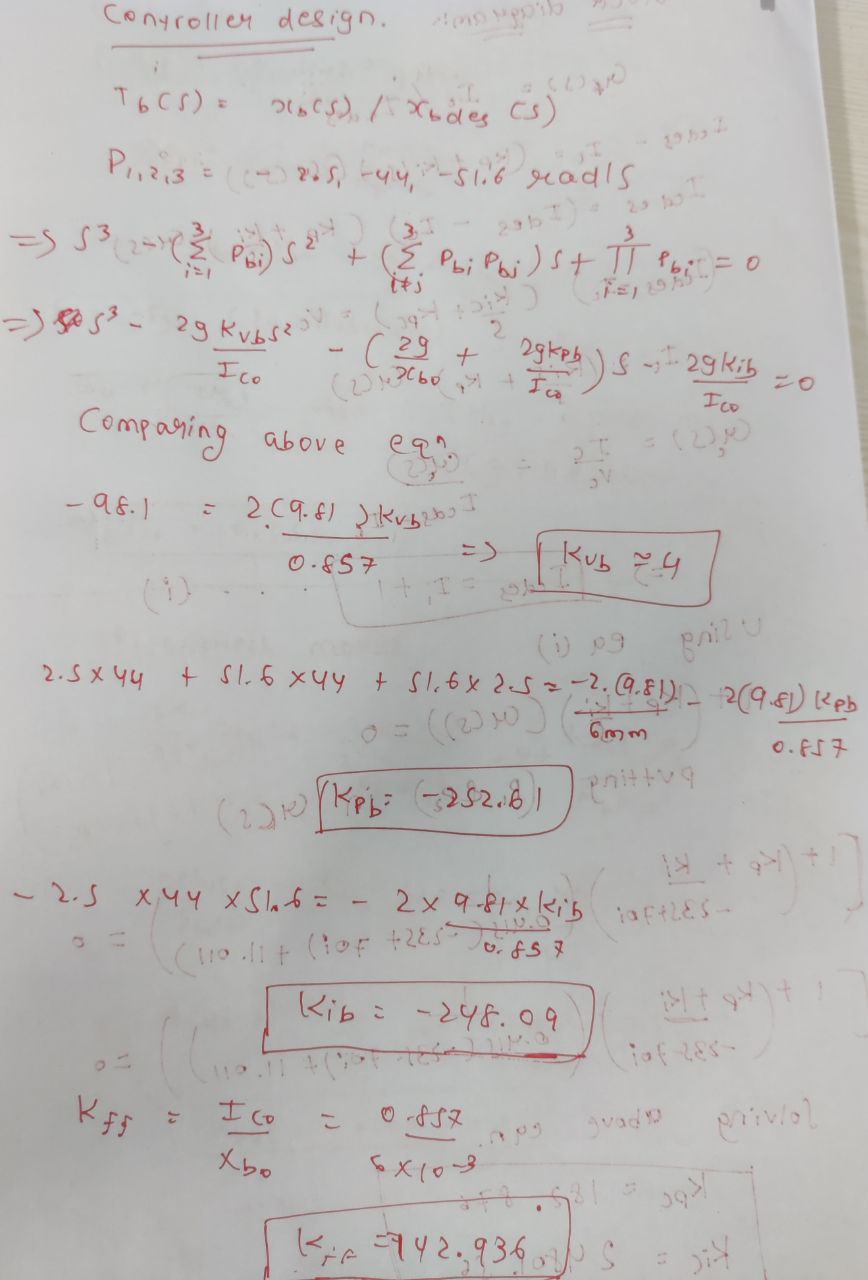 Controller design.
T_b(s) = x_b(s) / x_bdes (s)
P_1,2,3 = (-) 2.5, -44, -51.6 rad/s
=> s^3 - (∑_{i=1}^{3} P_bi) s^2 + (∑_{i≠j}^{3} P_bi P_bj) s + ∏_{i=1}^{3} P_bi = 0
=> s^3 - 2g K_vb s^2 / I_co - (2g / x_bo + 2g K_pb / I_co) s - 2g K_ib / I_co = 0
Comparing above eqn.
-98.1 = 2.(9.81) K_vb / 0.857 => K_vb ≈ 4
2.5 x 44 + 51.6 x 44 + 51.6 x 2.5 = -2.(9.81) / 6mm - 2(9.81) K_pb / 0.857
K_pb = -252.61
- 2.5 x 44 x 51.6 = - 2 x 9.81 x K_ib / 0.857
K_ib = -248.09
K_ff = I_co / x_bo = 0.857 / 6 x 10^-3
K_ff = 142.936